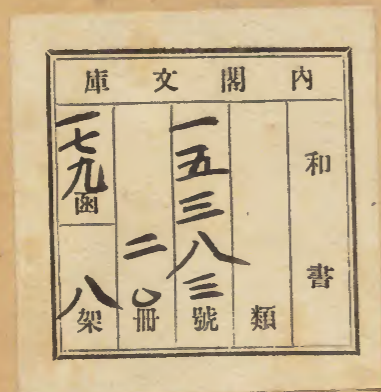 内閣文庫
和書
類
一五三八三號
二〇冊
一七九函
八架